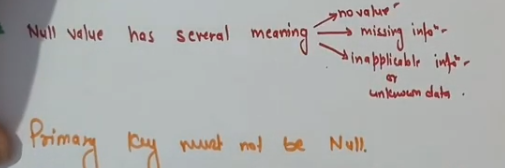 Null value has several meaning
no value
missing info
inapplicable info
or
unknown data.
Primary key must not be Null.